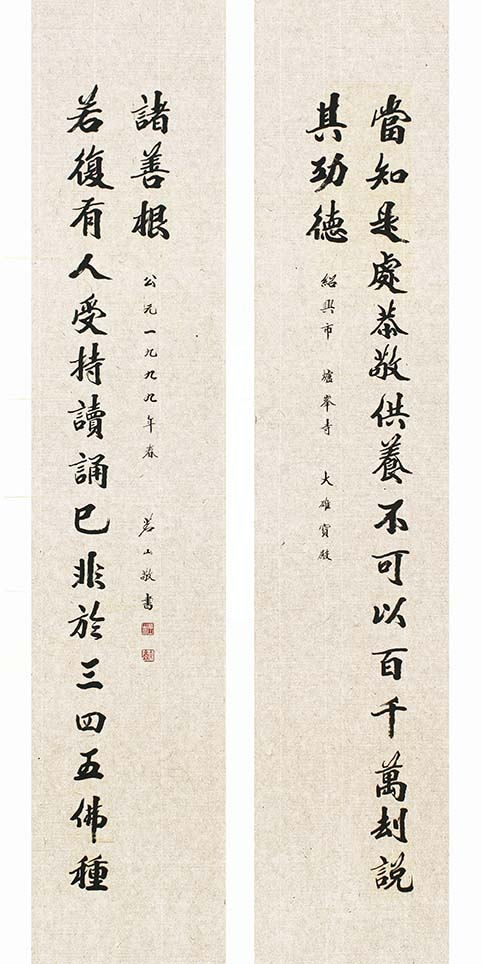 當知是處恭敬供養不可以百千萬刧說
其功德
紹興市 爐峯寺 大雄寶殿
若復有人受持讀誦已非於三四五佛種
諸善根
公元一九九九年春 茗山敬書